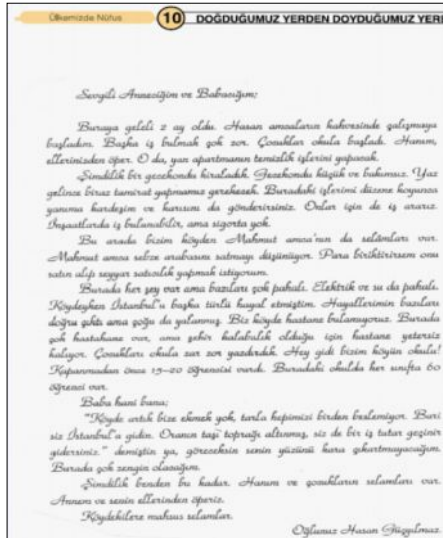 Ülkemizde Nüfus
10
DOĞDUĞUMUZ YERDEN DOYDUĞUMUZ YERE
Sevgili Anneciğim ve Babacığım;
Buraya geleli 2 ay oldu. Hasan amcaların kahvesinde çalışmaya
başladım. Başka iş bulmak çok zor. Çocuklar okula başladı. Hanım,
ellerinizden öper. O da, yan apartmanın temizlik işlerini yapacak.
Şimdilik bir gecekondu kiraladık. Gecekondu küçük ve bakımsız. Yaz
gelince biraz tamirat yapmamız gerekecek. Buradaki işlerimi düzene koyunca
yanıma kardeşim ve karısını da gönderirsiniz. Onlar için de iş ararız.
İnşaatlarda iş bulunabilir, ama sigorta yok.
Bu arada bizim köyden Mahmut amca'nın da selâmları var.
Mahmut amca sebze arabasını satmayı düşünüyor. Para biriktirirsem onu
satın alıp seyyar satıcılık yapmak istiyorum.
Burada her şey var ama bazıları çok pahalı. Elektrik ve su da pahalı.
Köydeyken İstanbul'u başka türlü hayal etmiştim. Hayallerimin bazıları
doğru çıktı ama çoğu da yalanmış. Biz köyde hastane bulamıyoruz. Burada
çok hastahane var, ama şehir kalabalık olduğu için hastane yetersiz
kalıyor. Çocukları okula zar zor yazdırdık. Hey gidi bizim köyün okulu!
Kapanmadan önce 15-20 öğrencisi vardı. Buradaki okulda her sınıfta 60
öğrenci var.
Baba hani bana;
"Köyde artık bize ekmek yok, tarla hepimizi birden beslemiyor. Bari
siz İstanbul'a gidin. Oranın taşı toprağı altınmış, siz de bir iş tutar geçinir
gidersiniz." demiştin ya, göreceksin senin yüzünü kara çıkartmayacağım.
Burada çok zengin olacağım.
Şimdilik benden bu kadar. Hanım ve çocukların selamları var.
Annem ve senin ellerinden öperiz.
Köydekilere mahsus selamlar.
Oğlunuz Hasan Güzyılmaz.